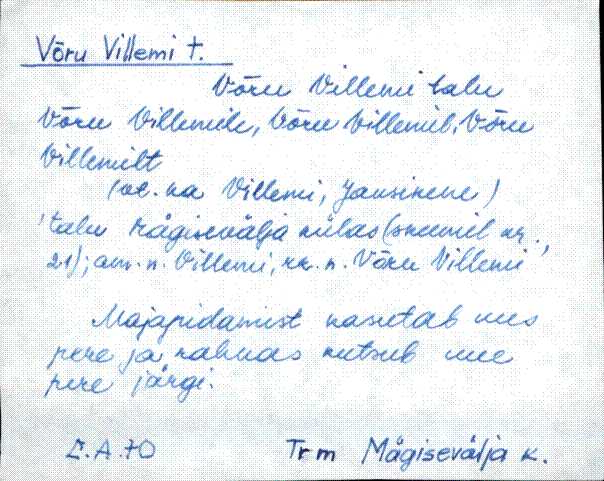 Võru Villemi t.
Võru Villemi talu
Võru Villemile, Võru Villemil, Võru
Villemilt
(vt. ka Villemi, Jansikene)
'talu Mägisevälja külas (skeemil nr.
21); am. n. Villemi, rk. n. Võru Villemi'
Majapidamist kasutab uus
pere ja rahvas kutsub uue
pere järgi.
E.A.70 Trm Mägisevälja k.